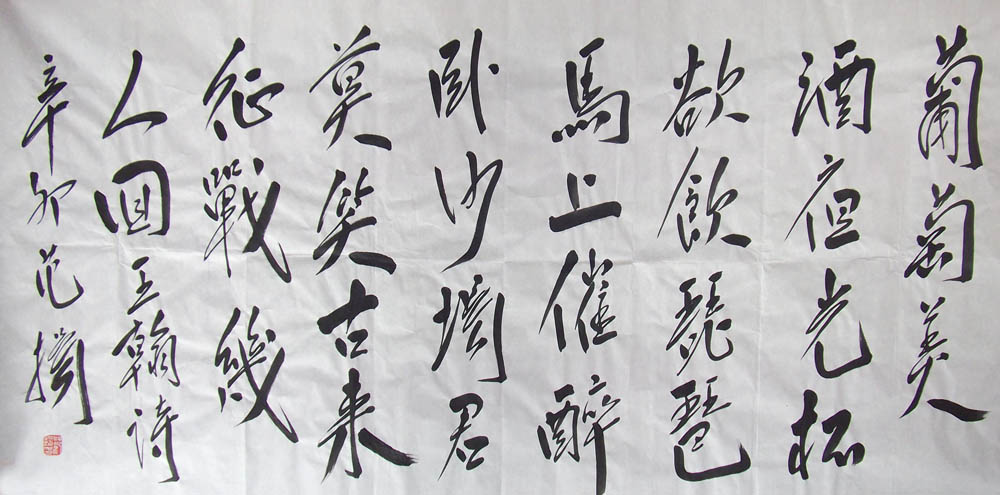 葡萄美
酒夜光杯
欲飲琵琶
馬上催醉
卧沙場君
莫笑古来
征戰幾
人回王翰詩
辛卯范